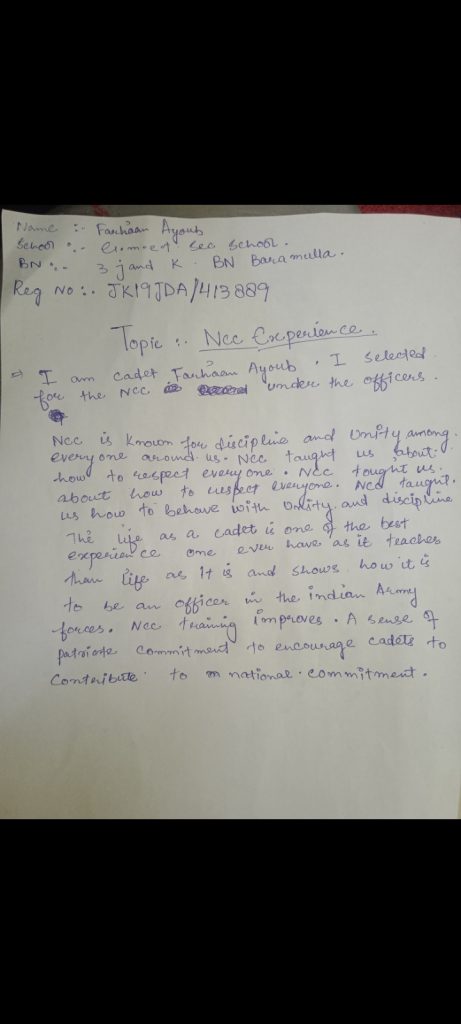 Name :- Farhaan Ayoub
School :- Sec School.
BN :- 3 j and K. BN Baramulla.
Reg No :- JK19JDA/413889
Topic :- Ncc Experience.
⇒ I am cadet Farhaan Ayoub. I selected
for the NCC under the officers.
Ncc is known for discipline and Unity among
everyone around us. Ncc taught us about
how to respect everyone. Ncc tought us.
about how to respect everyone. Ncc taught.
us how to behave with Unity and discipline
The life as a cadet is one of the best
experience one ever have as it teaches
than life as It is and shows how it is
to be an officer in the indian Army
forces. Ncc training improves. A sense of
patriote commitment to encourage cadets to
Contribute to national commitment.